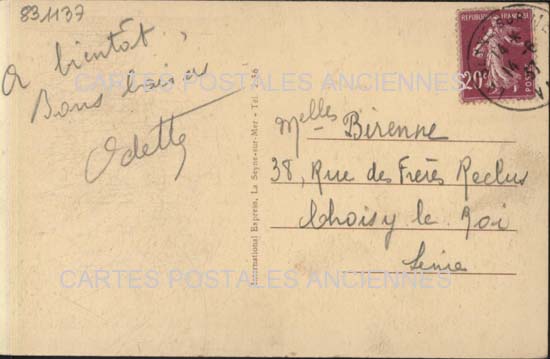 831137
A bientôt,
Bons baisers
Odette
International Express, La Seyne-sur-Mer - Tél.
REPUBLIQUE FRANÇAISE
20c
POSTES
Melles Bérenne
38, Rue des Frères Reclus
Choisy le Roi
Seine
CARTES POSTALES ANCIENNES
CARTES POSTALES ANCIENNES